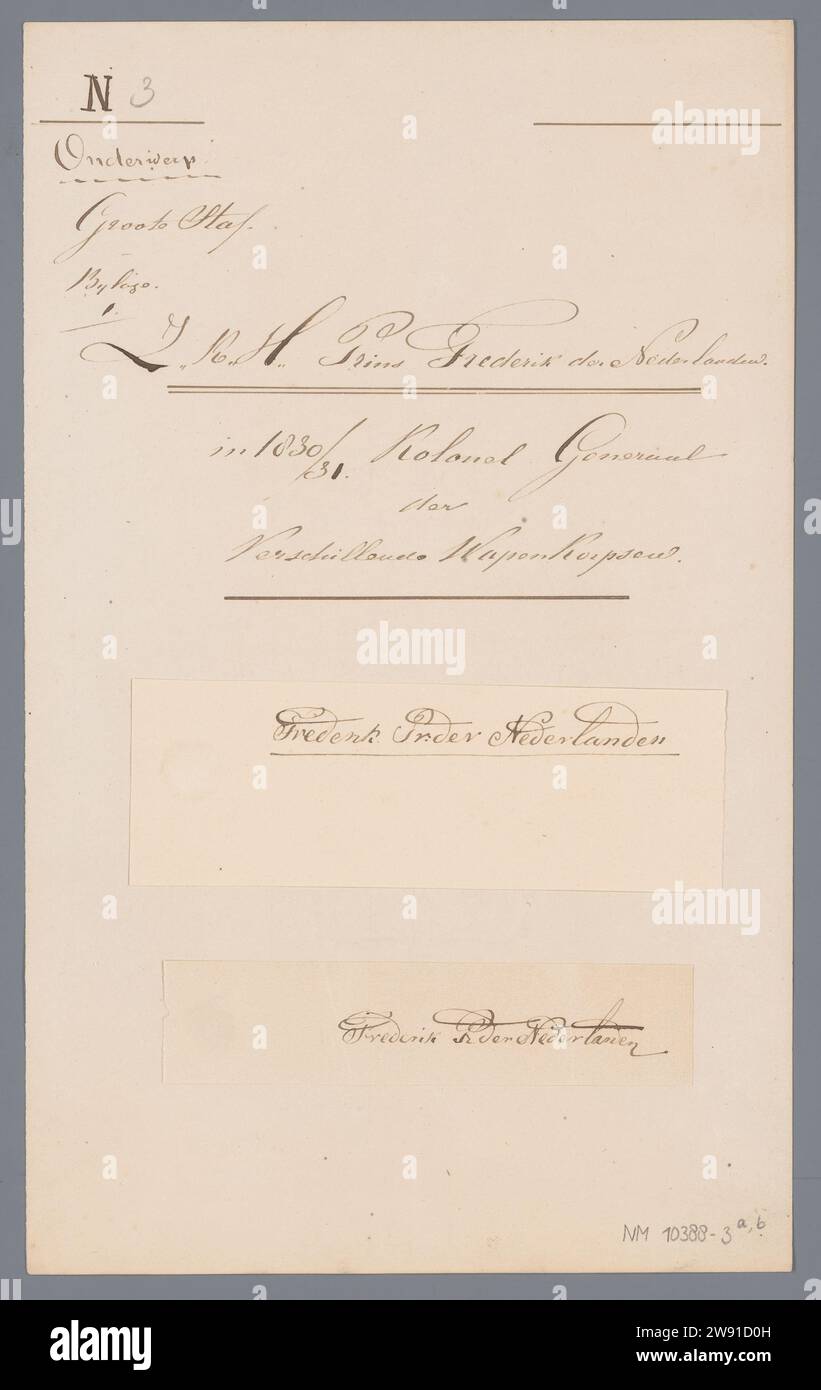 N 3
Onderwerp.
Groote Staf.
Bylage.
1.
Z.,, K.,, H.,, Prins Frederik der Nederlanden.
in 1830/31. Kolonel Generaal
der
Verschillende Wapenkorpsen.
Frederik Pr: der Nederlanden
Frederik Pr der Nederlanden
NM 10388-3 a, b.
alamy
alamy
Image ID: 2W91D0H
www.alamy.com